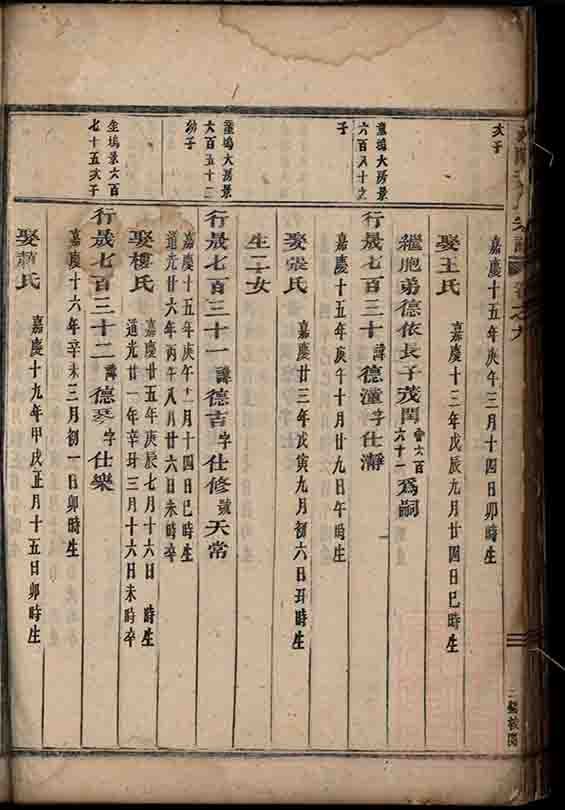 次子
嘉慶十五年庚午三月十四日卯時生
娶王氏
嘉慶十三年戊辰九月廿四日巳時生
繼胞弟德依長子茂閏
六十一
為嗣
六百八十之
子
行晟七百三十諱德潼字仕瀞
嘉慶十五年庚午十月廿九日午時生
娶張氏
嘉慶廿三年戊寅九月初六日丑時生
生二女
大百五十二
幼子
行晟七百三十一諱德吉字仕修號天常
嘉慶十五年庚午十一月十四日巳時生
道光廿六年丙午八月廿六日未時卒
娶樓氏
嘉慶廿五年庚辰七月十六日時生
道光廿一年辛丑三月十六日未時卒
七十五次子
行晟七百三十二諱德琴字仕樂
嘉慶十六年辛未三月初一日卯時生
娶蕭氏
嘉慶十九年甲戌正月十五日卯時生